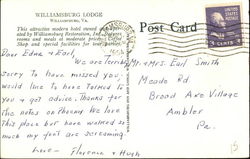 WILLIAMSBURG LODGE
WILLIAMSBURG, VA.
This attractive modern hotel owned and operated
by Williamsburg Restoration, Inc.
rooms and meals at moderate prices.
Shop and special facilities for tour parties.
Post Card
3 CENTS 3
Dear Edna & Earl,
We are terribly
sorry to have missed you.
would like to have talked to
you & get advice. Thanks for
the notes on Phoenix. We love
this place but have walked so
much my feet are screaming.
Love - Florence & Hugh
Mr + Mrs. Earl Smith
Meade Rd.
Broad Axe Village
Ambler
Pa.